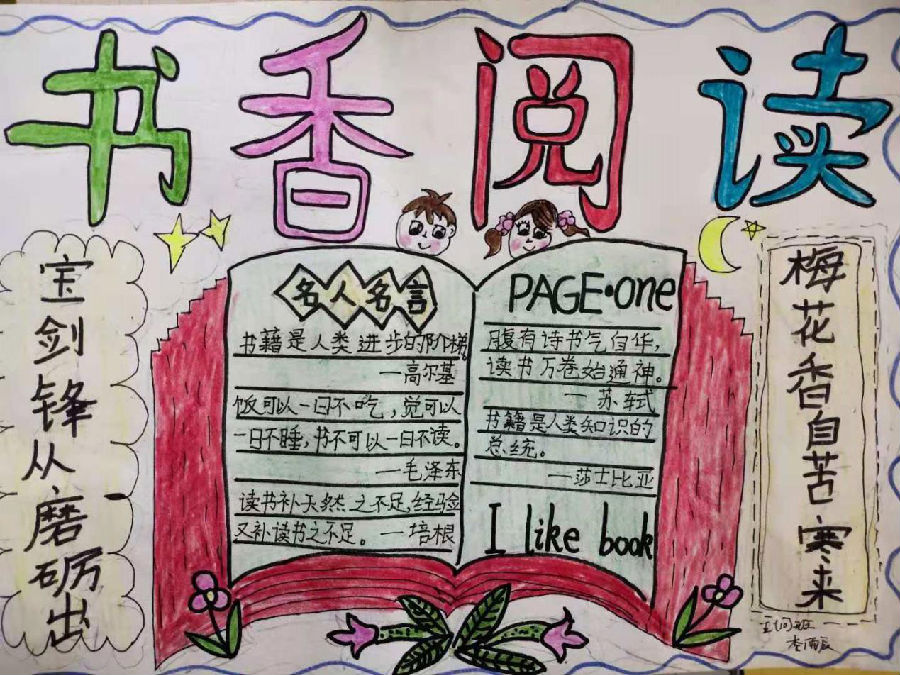 书香阅读
宝剑锋从磨砺出
名人名言
书籍是人类进步的阶梯
—高尔基
饭可以一日不吃，觉可以
一日不睡，书不可以一日不读。
—毛泽东
读书补天然之不足，经验
又补读书之不足。—培根
PAGE·one
腹有诗书气自华，
读书万卷始通神。
—苏轼
书籍是人类知识的
总统。
—莎士比亚
I like book
梅花香自苦寒来